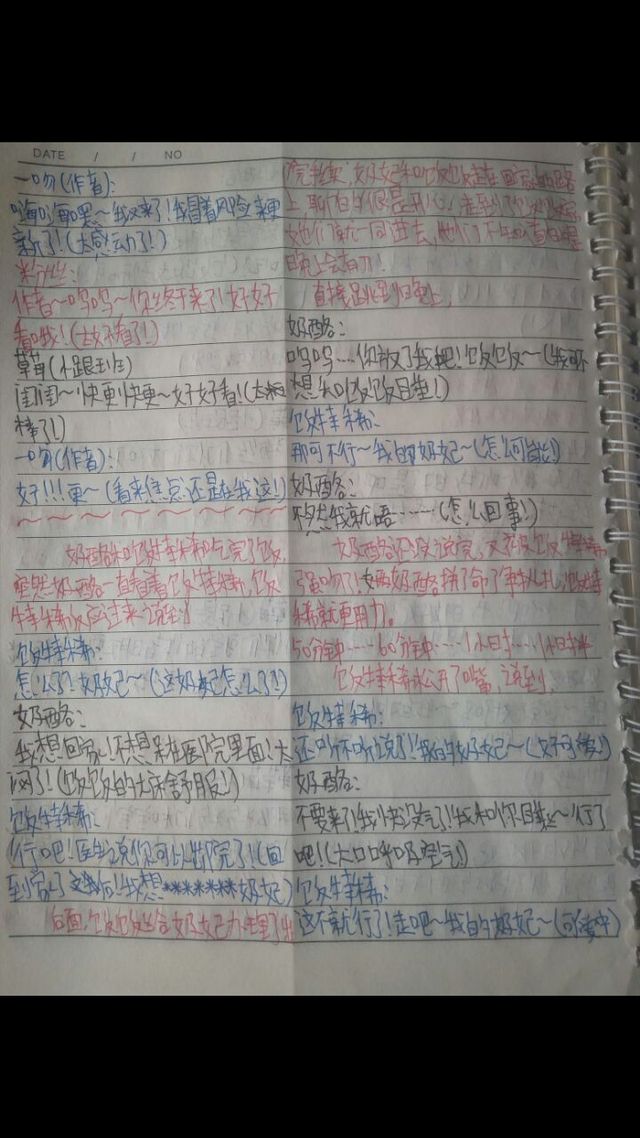 DATE / / NO
一吻(作者):
嗨嗨嘿~我又来了!我冒着风险来更
新了!(太感动了!)
米分丝:
作者~呜呜~你终于来了!好好
看哦!(太好看了!)
草莓(小跟班)
闺闺~快更快更~好好看!(太
棒了!)
一吻(作者):
好!!!更~(看来焦点还是在我这!)
~~~~~~~~~~
奶酪和饭特稀吃完了饭,
突然奶酪一直看着饭特稀,饭
特稀反应过来说到
饭特稀:
怎么了?奶妃~(这奶妃怎么了?)
奶酪:
我想回家!不想呆在医院里面!太
闷了!(饭饭的大床舒服!)
饭特稀:
行吧!医生说你可以出院了!(回
到家了之后!我想*******奶妃)
后面,饭饭给奶妃办理了出
院手续,奶妃和饭饭走在回家的路
上,聊的很是开心,走到了
她们就一同进去,他们不知道
晚上会有刀!
直接跳到晚上,
奶酪:
呜呜……你放了我吧!饭饭~(我可不
想和饭饭)
饭特稀:
那可不行~我的奶妃~(怎么可能!)
奶酪:
不然我就语……(怎么回事!)
奶酪还没说完,又被饭特稀
强吻了!奶酪拼了命了争扎,饭特
稀就更用力。
50分钟……60分钟……1小时……1小时半
饭特稀松开了嘴,说到,
饭特稀:
还听不听说了!我的奶妃~(好可爱!)
奶酪:
不要来了!我快没气了!我和你回~行了
吧!(大口呼吸空气!)
饭特稀:
这不就行了!走吧~我的奶妃~(可爱中)